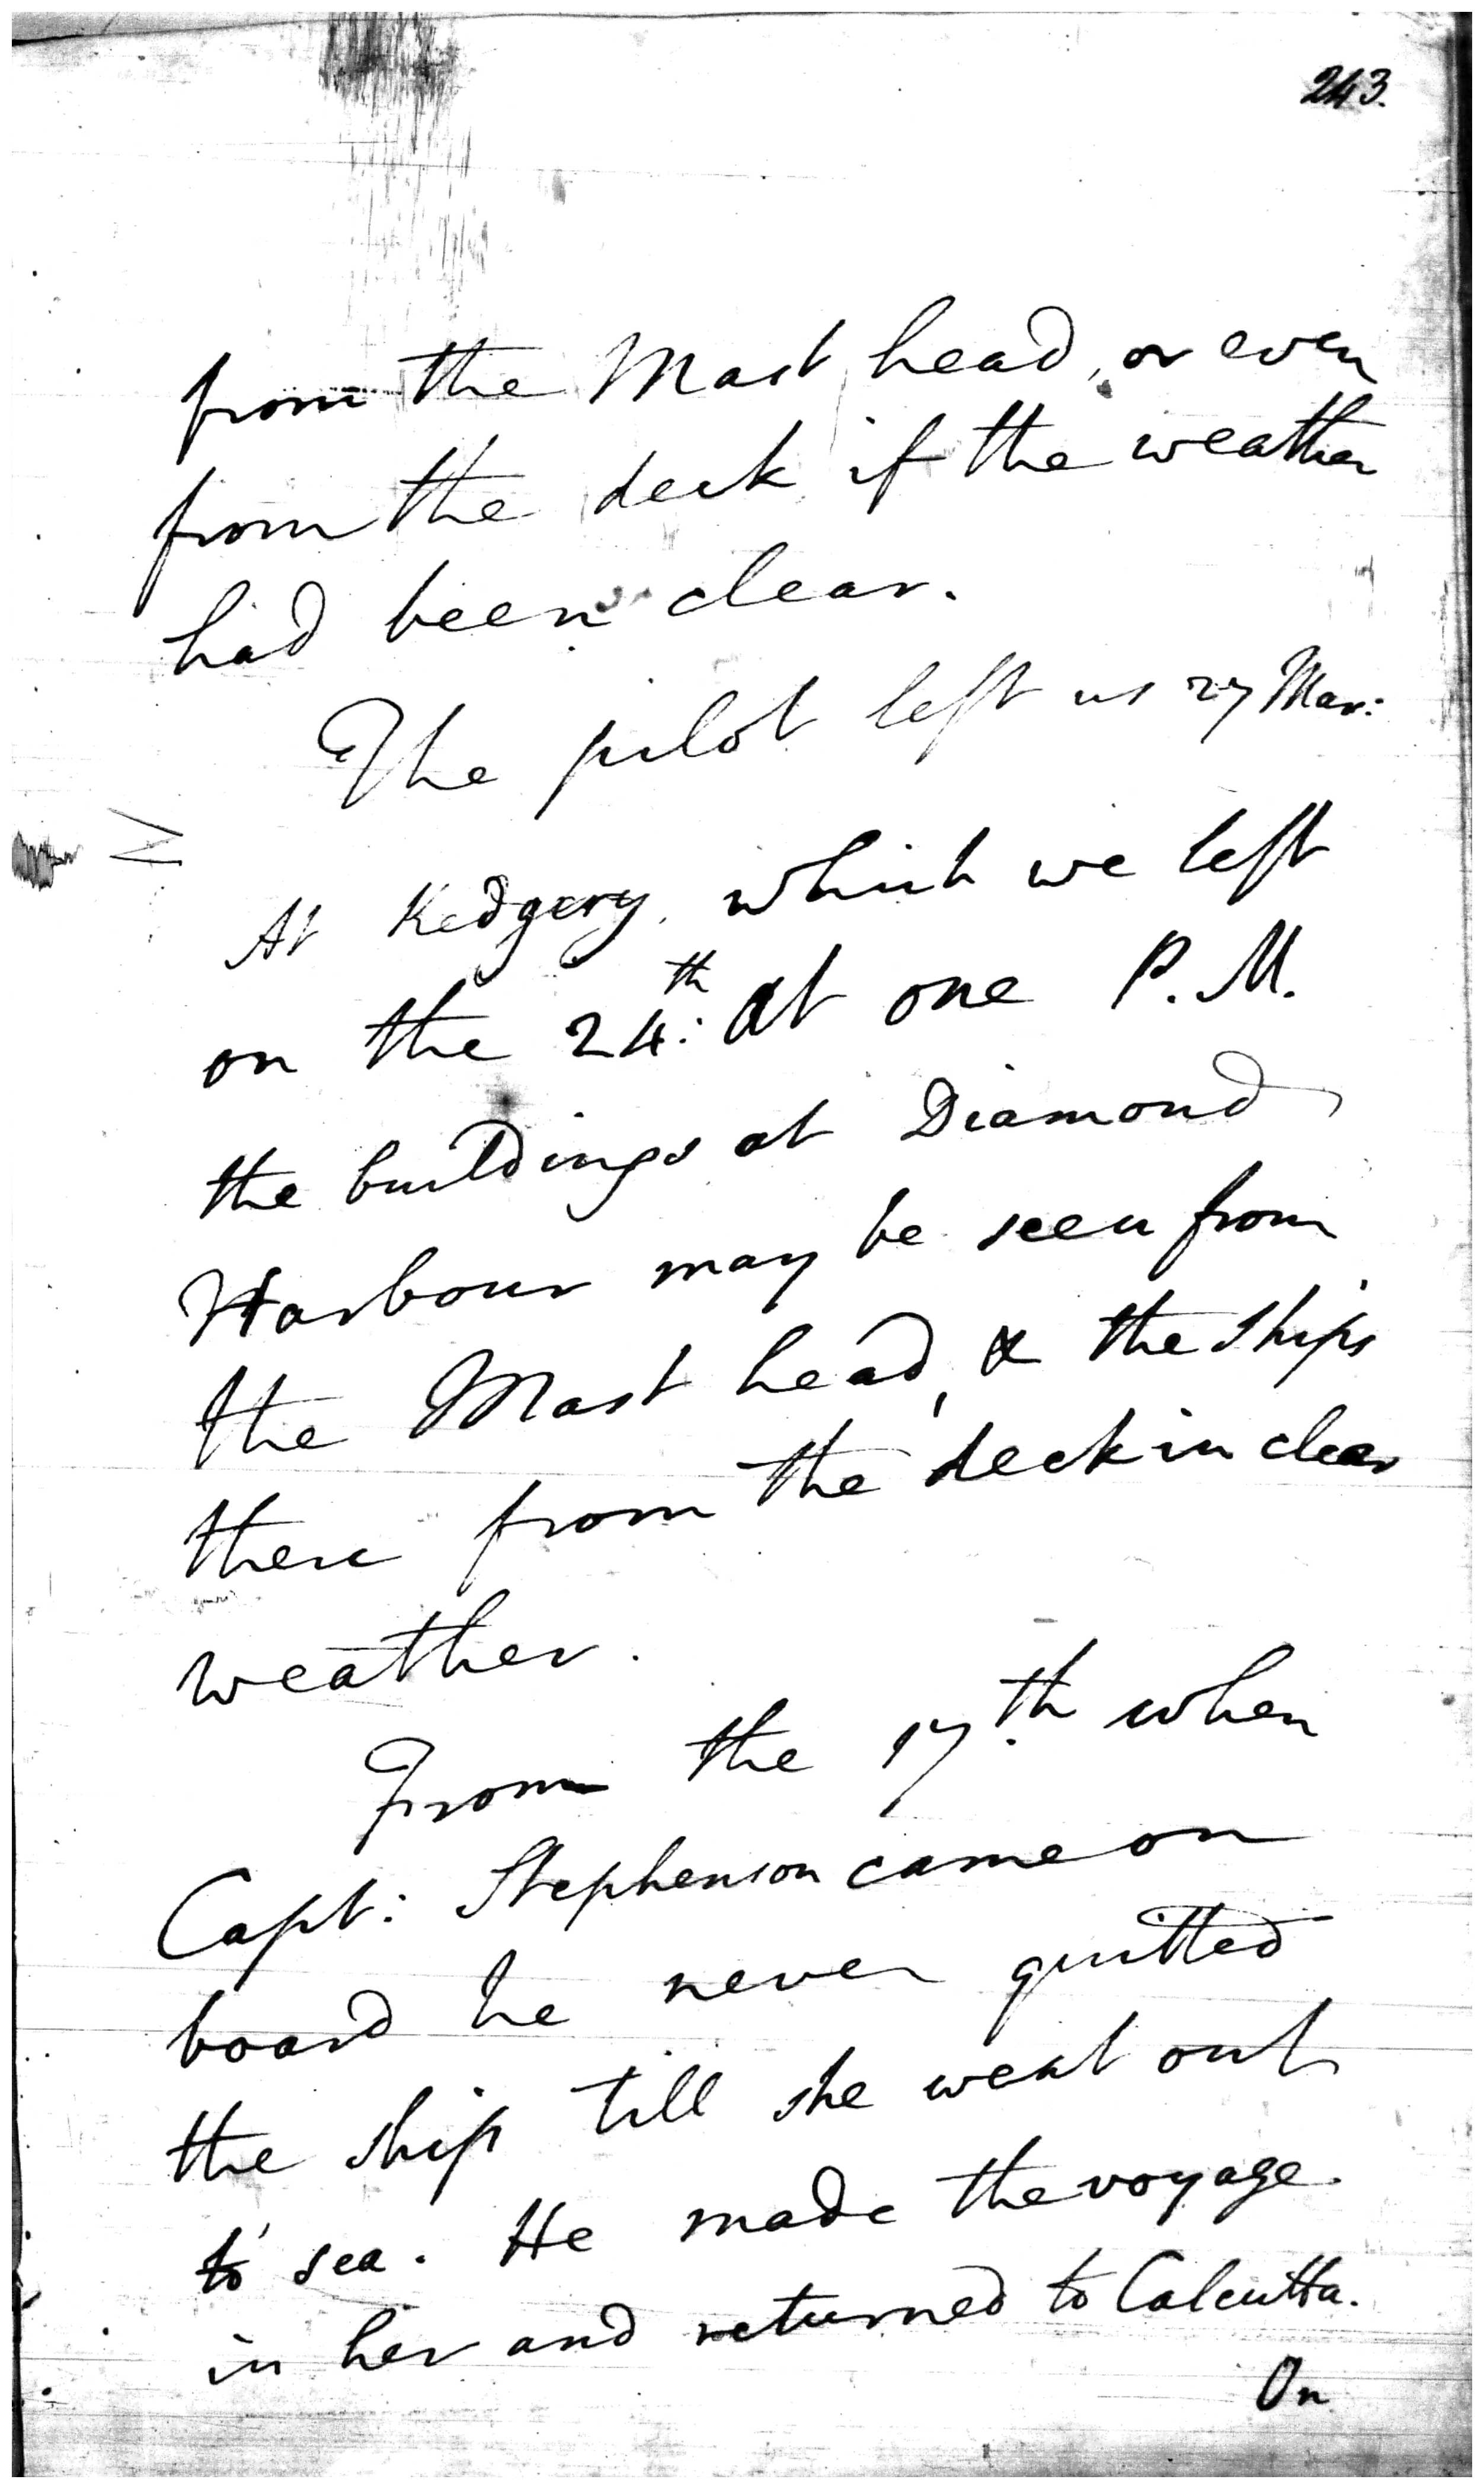 243.
from the Mast head, or even
from the deck if the weather
had been clear.
The pilot left us 27 Mar:
At Kedgery, which we left
on the 24:th at one P.M.
the buildings at Diamond
Harbour may be seen from
the Mast head, & the ships
there from the deck in clear
weather.
From the 17.th when
Capt: Stephenson came on
board he never quitted
the ship till she went out
to sea. He made the voyage
in her and returned to Calcutta.
On